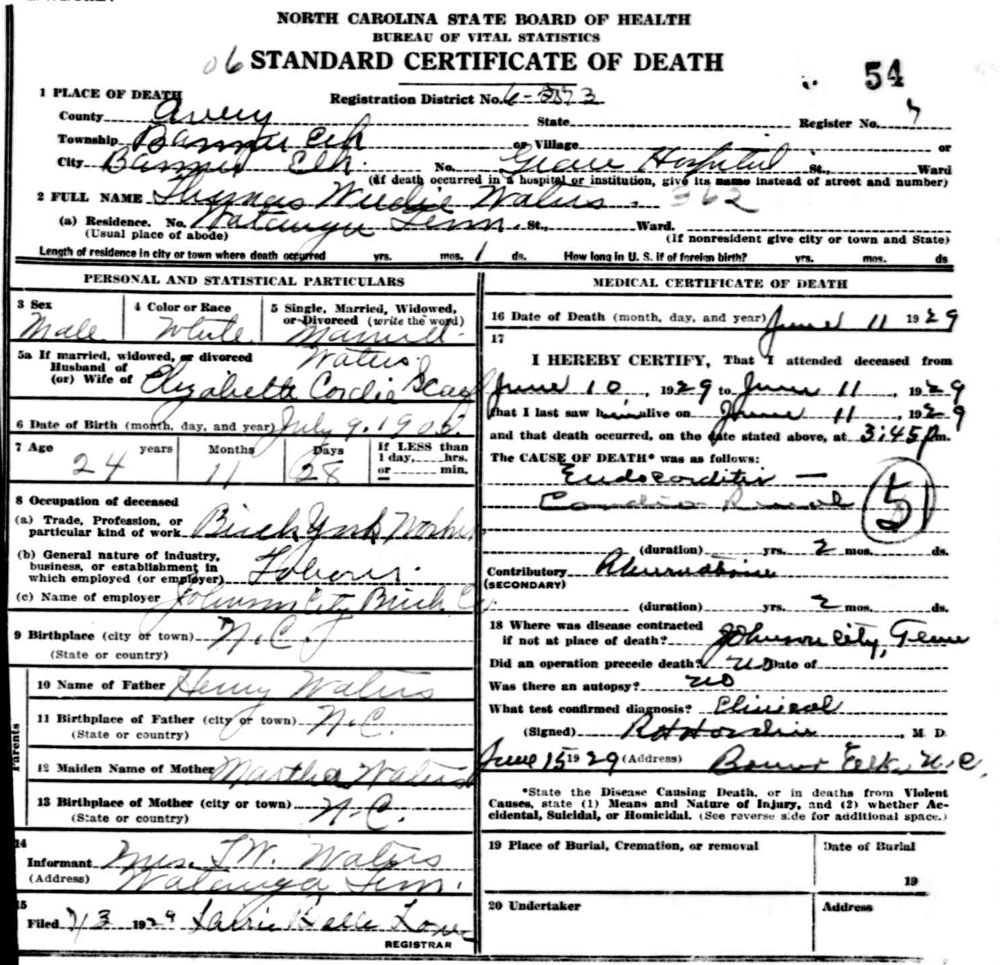 NORTH CAROLINA STATE BOARD OF HEALTH
BUREAU OF VITAL STATISTICS
06 STANDARD CERTIFICATE OF DEATH
54
1 PLACE OF DEATH
Registration District No.
County Avery State Register No. 7
Township Banner Elk or Village or
City Banner Elk. No. Grace Hospital St., Ward
(If death occurred in a hospital or institution, give its name instead of street and number)
2 FULL NAME Thomas Waters. 362
(a) Residence. No. Watauga Tenn. St., Ward.
(Usual place of abode) (If nonresident give city or town and State)
Length of residence in city or town where death occurred yrs. mos. 1 ds. How long in U. S. if of foreign birth? yrs. mos. ds
PERSONAL AND STATISTICAL PARTICULARS
3 Sex
Male
4 Color or Race
White
5 Single, Married, Widowed,
or Divorced (write the word)
5a If married, widowed, or divorced Waters
Husband of
(or) Wife of Elizabeth Cordie
6 Date of Birth (month, day, and year) July 9. 190
7 Age
24 years
Months
11
Days
28
If LESS than
1 day, hrs.
or min.
8 Occupation of deceased
(a) Trade, Profession, or
particular kind of work Brick Yard
(b) General nature of industry,
business, or establishment in
which employed (or employer)
(c) Name of employer Johnson City Brick Co.
9 Birthplace (city or town) N.C.
(State or country)
Parents
10 Name of Father Henry Waters
11 Birthplace of Father (city or town) N.C.
(State or country)
12 Maiden Name of Mother Martha Waters
13 Birthplace of Mother (city or town) N.C.
(State or country)
14
Informant Mrs. T.W. Waters
(Address) Watauga Tenn.
15
Filed 7/3 1929
REGISTRAR
MEDICAL CERTIFICATE OF DEATH
16 Date of Death (month, day, and year) June 11 1929
17
I HEREBY CERTIFY, That I attended deceased from
June 10, 1929 to June 11, 1929
that I last saw him alive on June 11, 1929
and that death occurred, on the date stated above, at 3:45 pm.
The CAUSE OF DEATH* was as follows:
Endocarditis
Cardio Renal
51
(duration) yrs. 2 mos. ds.
Contributory
(SECONDARY)
(duration) yrs. 2 mos. ds.
18 Where was disease contracted
if not at place of death? Johnson City, Tenn
Did an operation precede death? no Date of
Was there an autopsy? no
What test confirmed diagnosis? Clinical
(Signed) R H , M D.
June 15 1929 (Address) Banner Elk, N.C.
*State the Disease Causing Death, or in deaths from Violent
Causes, state (1) Means and Nature of Injury, and (2) whether Ac-
cidental, Suicidal, or Homicidal. (See reverse side for additional space.)
19 Place of Burial, Cremation, or removal
Date of Burial
19
20 Undertaker
Address